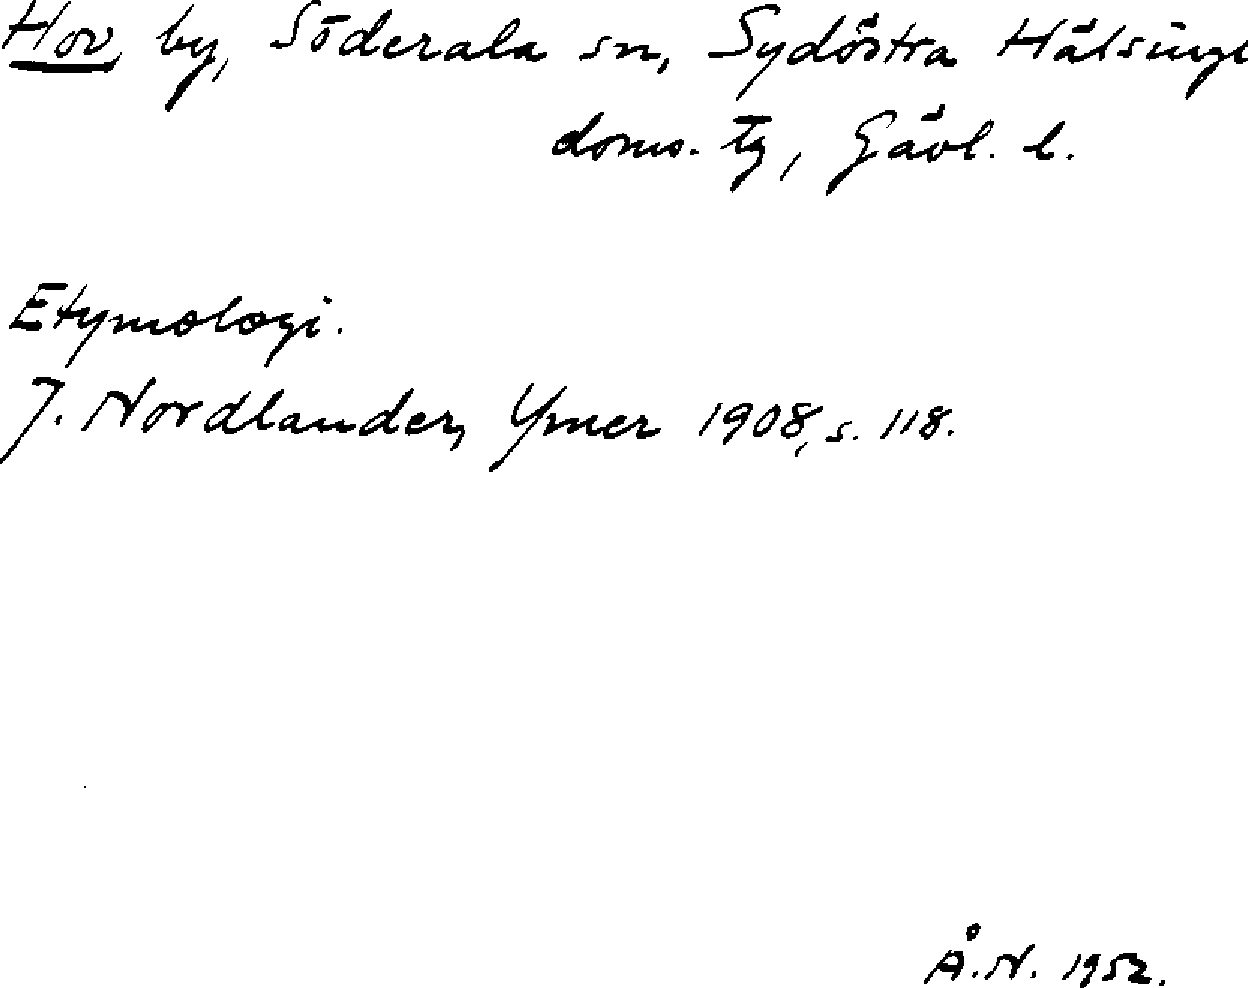 Hov, by, Söderala sn, Sydöstra Hälsingl
doms. tg, Gävl. l.
Etymologi.
J. Nordlander, Ymer 1908, s. 118.
Å.N. 1952.